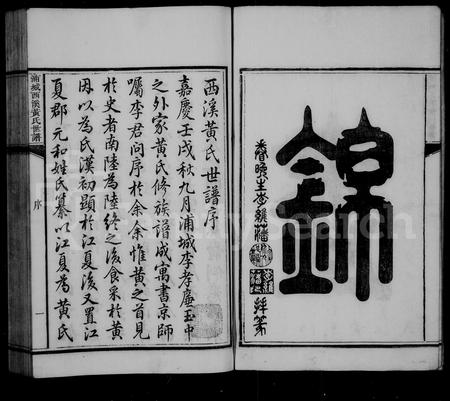 錦
眷晚生李藩
拜篆
西溪黃氏世譜序
嘉慶壬戌秋九月浦城李孝廉玉中
之外家黃氏修族譜成寓書京師
囑李君問序於余余惟黃之首見
於史者南陸為陸終之後食采於黃
因以為氏漢初顯於江夏後又置江
夏郡元和姓氏纂以江夏為黃氏
浦城西溪黃氏世譜
序
一
FamilySearch